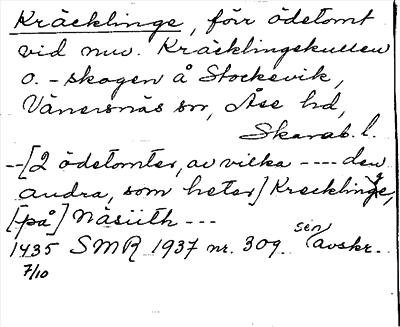 Kräcklinge, förr ödetomt
vid nuv. Kräcklingekullen
o. -skogen å Stockevik,
Vänersnäs sn, Åse hd,
Skarab. l.
--[2 ödetomter, av vilka ---- den
andra, som heter] Krecklinge,
[på] Näsiith ---
1435 SMR 1937 nr. 309. sen avskr.
7/10